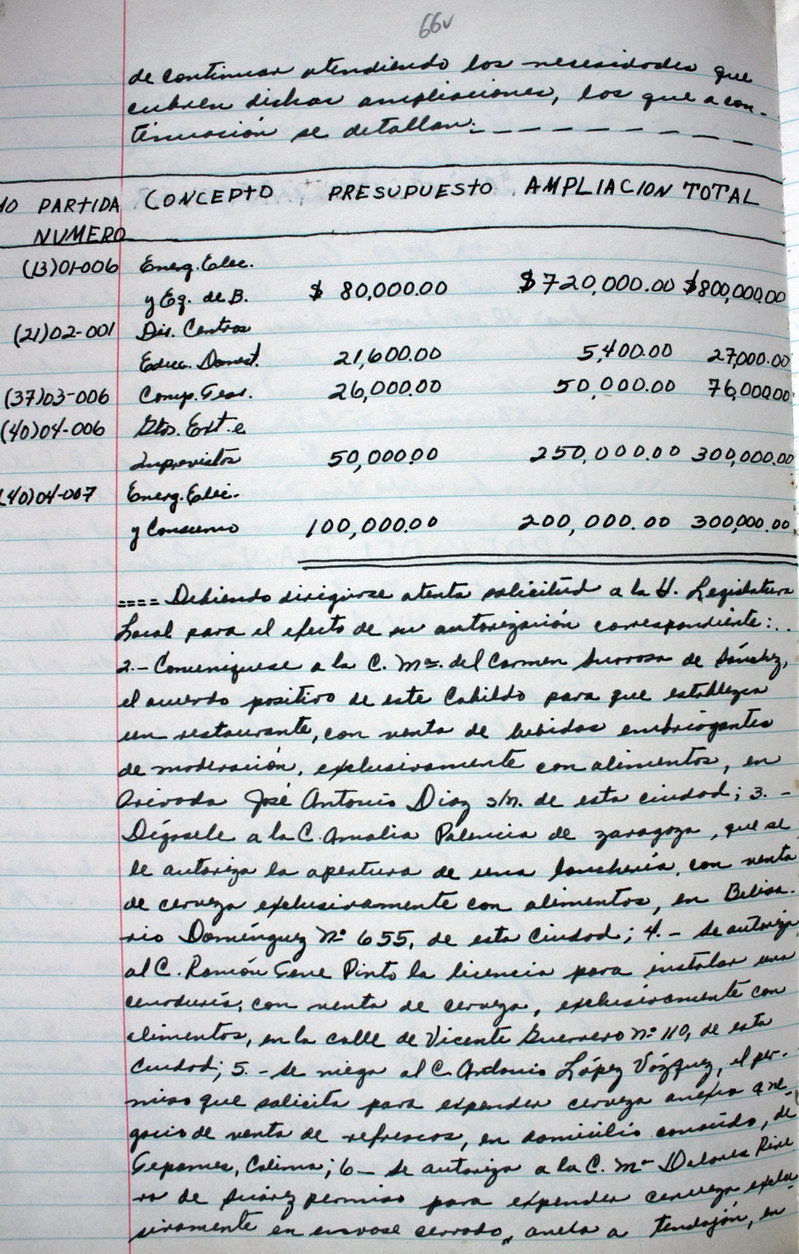 66v
de continuar atendiendo las necesidades que
cubren dichas ampliaciones, las que a con-
tinuación se detallan:- - - - - - - - -
NO PARTIDA CONCEPTO PRESUPUESTO AMPLIACION TOTAL
NUMERO
(13)01-006 Energ. Elec.
y Eq. de B. $ 80,000.00 $720,000.00 $800,000.00
(21)02-001 Dir. Centros
Educ. Domést. 21,600.00 5,400.00 27,000.00
(37)03-006 Comp. 26,000.00 50,000.00 76,000.00
(40)04-006 Gtos. Ext. e
Imprevistos 50,000.00 250,000.00 300,000.00
(40)04-007 Energ. Elec.
y Consumo 100,000.00 200,000.00 300,000.00
==== Debiendo dirigirse atenta solicitud a la H. Legislatura
Local para el efecto de su autorización correspondiente: . .
2.- Comuníquese a la C. Ma. del Carmen de Sánchez,
el acuerdo positivo de este Cabildo para que establezca
un restaurante, con venta de bebidas embriagantes
de moderación, exclusivamente con alimentos, en
Privada José Antonio Díaz s/n. de esta ciudad; 3.-
Dígasele a la C. Amalia Palencia de Zaragoza, que se
le autoriza la apertura de una lonchería, con venta
de cerveza exclusivamente con alimentos, en Belisa-
rio Domínguez No 655, de esta Ciudad; 4.- Se autoriza
al C. Ramón Tene Pinto la licencia para instalar una
cenaduría, con venta de cerveza, exclusivamente con
alimentos, en la calle de Vicente Guerrero No 110, de esta
Ciudad; 5.- Se niega al C. Antonio López Vázquez, el per-
miso que solicita para expender cerveza anexa a ne-
gocio de venta de refrescos, en domicilio conocido, de
Tepames, Colima; 6- Se autoriza a la C. Ma Dolores Rive
ra de Suárez permiso para expender cerveza exclu-
sivamente en envase cerrado, anexa a tendajón, en